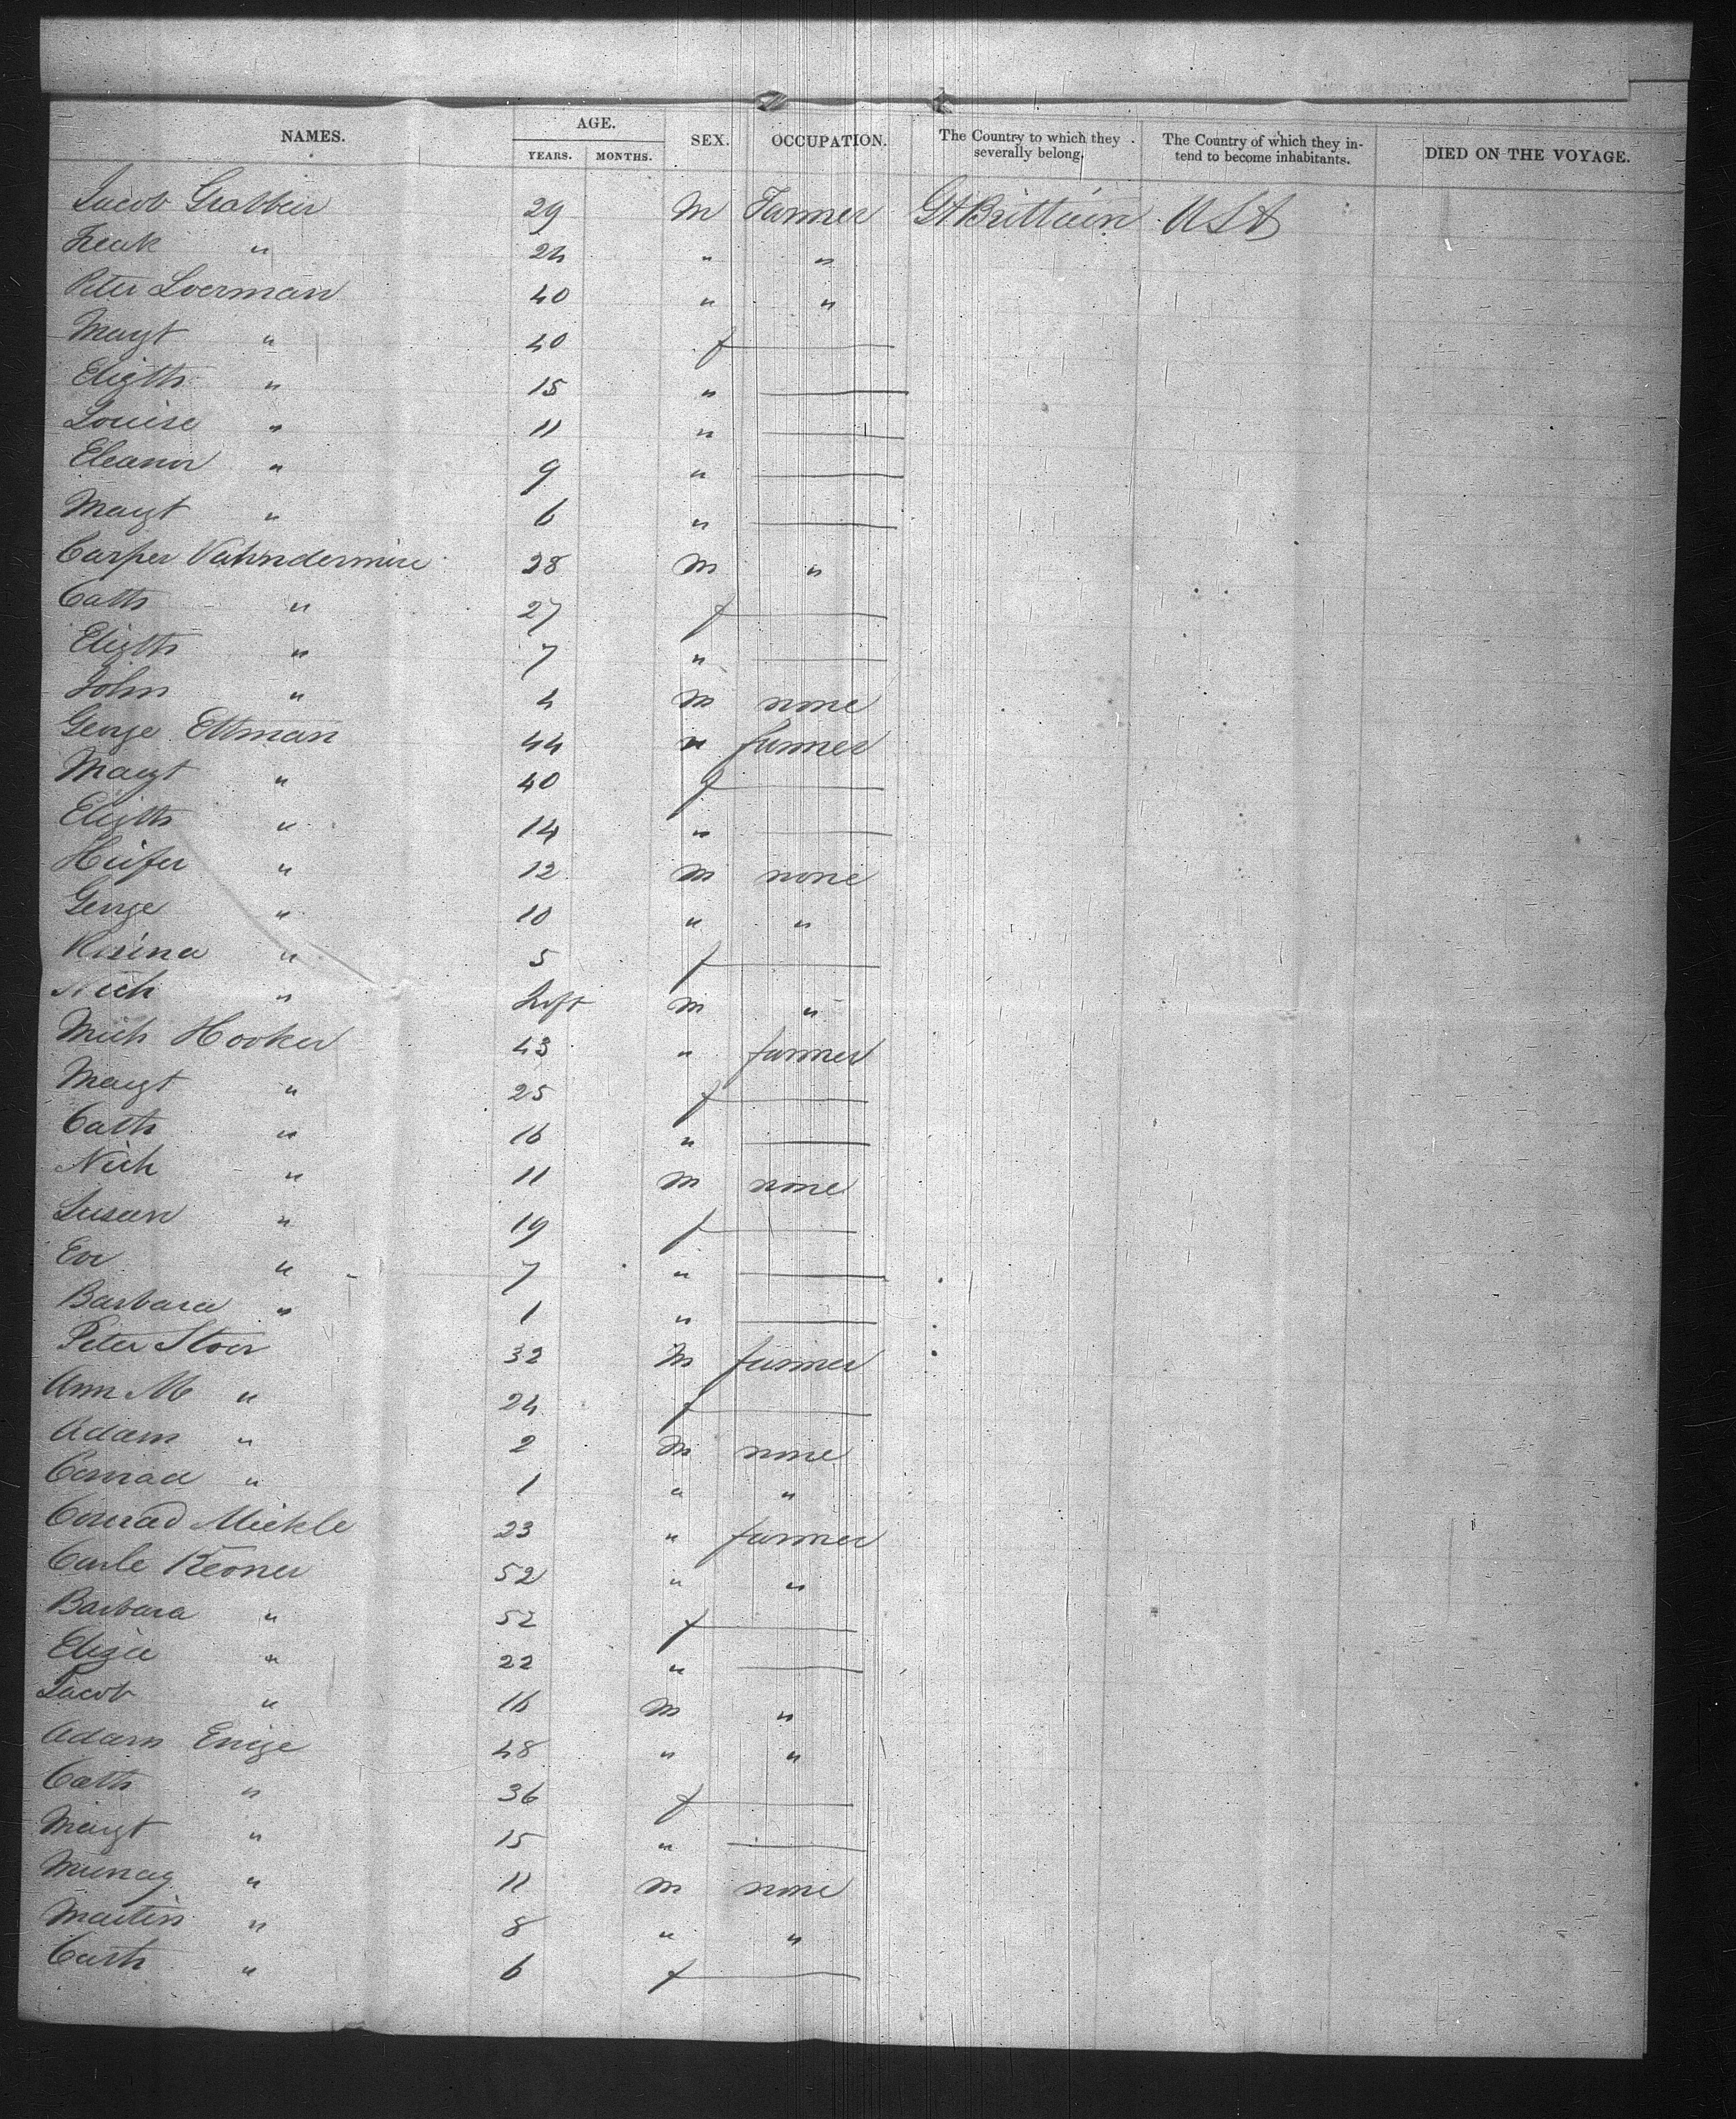 NAMES. AGE. SEX. OCCUPATION. The Country to which they severally belong. The Country of which they intend to become inhabitants. DIED ON THE VOYAGE.
YEARS. MONTHS.
Jacob 29 M Farmer Gt Brittain USA
" 24 " "
Peter Loerman 40 " "
Magt " 40 f
Eligth " 15 "
Louise " 11 "
Eleanor " 9 "
Magt " 6 "
Casper 28 M "
Cath " 27 f
Eligth " 7 "
John " 4 M none
George Ettman 44 " farmer
Magt " 40 f
Eligth " 14 "
" 12 M none
George " 10 " "
Rosina " 5 f
Nich " Inft M "
Mich Hooker 43 " farmer
Magt " 25 f
Cath " 16 "
Nich " 11 M none
Susan " 19 f
Eve " 7 "
Barbara " 1 "
Peter Stoer 32 M farmer
Ann M " 24 f
Adam " 2 M none
Conrad " 1 " "
Conrad Mickle 23 " farmer
Carle Keoner 52 " "
Barbara " 52 f
Eliza " 22 "
Jacob " 16 M "
Adam 48 " "
Cath " 36 f
Magt " 15 "
" 11 M none
Martin " 8 " "
Cath " 6 f